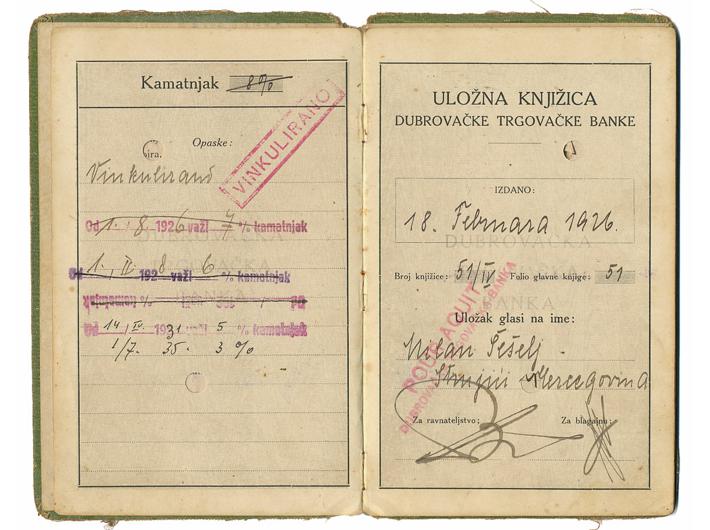 Kamatnjak 8%
Opaske:
Vinkulirano
VINKULIRANO
Od 1. 8. 1926 važi 7 % kamatnjak
Od 1. IV 1928 važi 6 % kamatnjak
Od 14 IV. 1931 važi 5 % kamatnjak
1/7. 35. 3 %
ULOŽNA KNJIŽICA
DUBROVAČKE TRGOVAČKE BANKE
IZDANO:
18. Februara 1926.
Broj knjižice: 51/IV Folio glavne knjige: 51
Uložak glasi na ime:
Milan Šešelj
Hercegovina
Za ravnateljstvo: Za blagajnu: